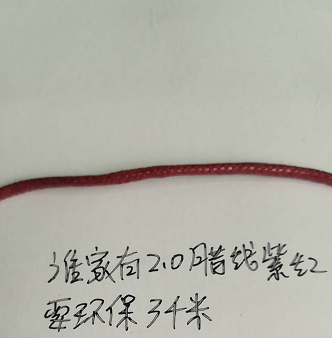 谁家有2.0腊线紫红
要环保34米